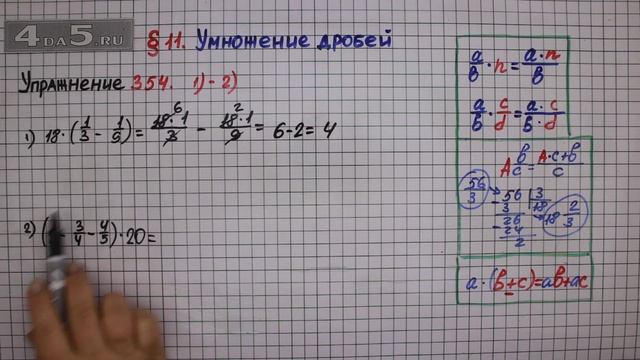 4DA5.RU
§ 11. Умножение дробей
Упражнение 354. 1)-2)
1) 18·(1/3 - 1/9) = 18·1/3 - 18·1/9 = 6-2= 4
6 2
2) ( - 3/4 - 4/5)·20=
a/b · n = a·n/b
a/b · c/d = a·c/b·d
A b/c = A·c+b/c
56/3
56 | 3
- 3 18
26 → 18 2/3
- 24
2
a·(b+c)=ab+ac